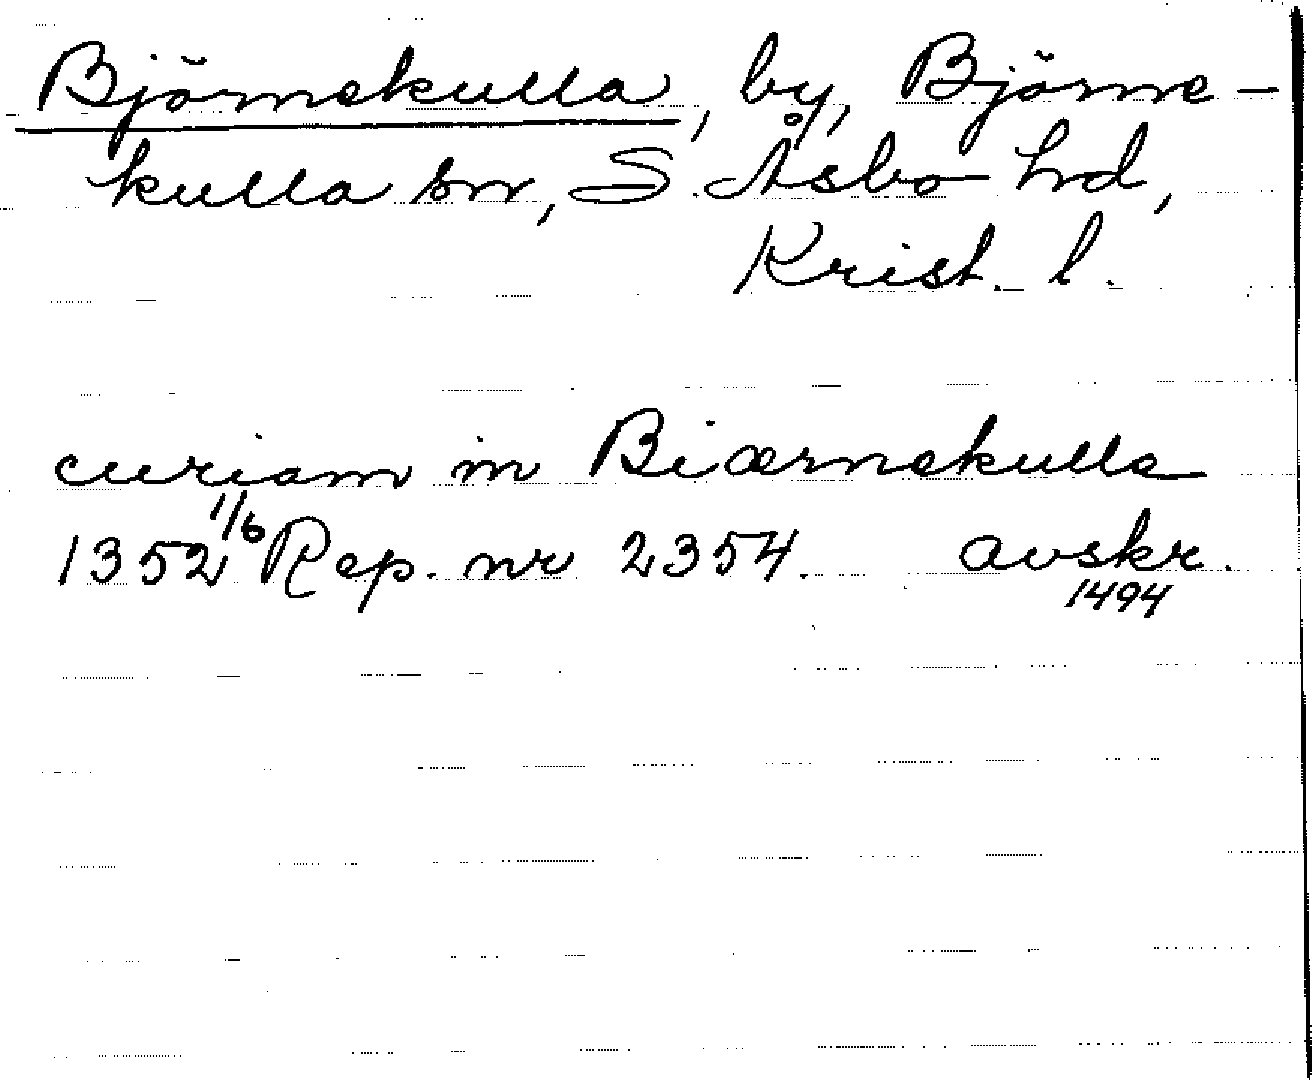 Björnekulla, by, Björne-
kulla sn, S. Åsbo hd,
Krist. l.
curiam in Biærnekulle
1352 1/6 Rep. nr 2354. avskr.
1494